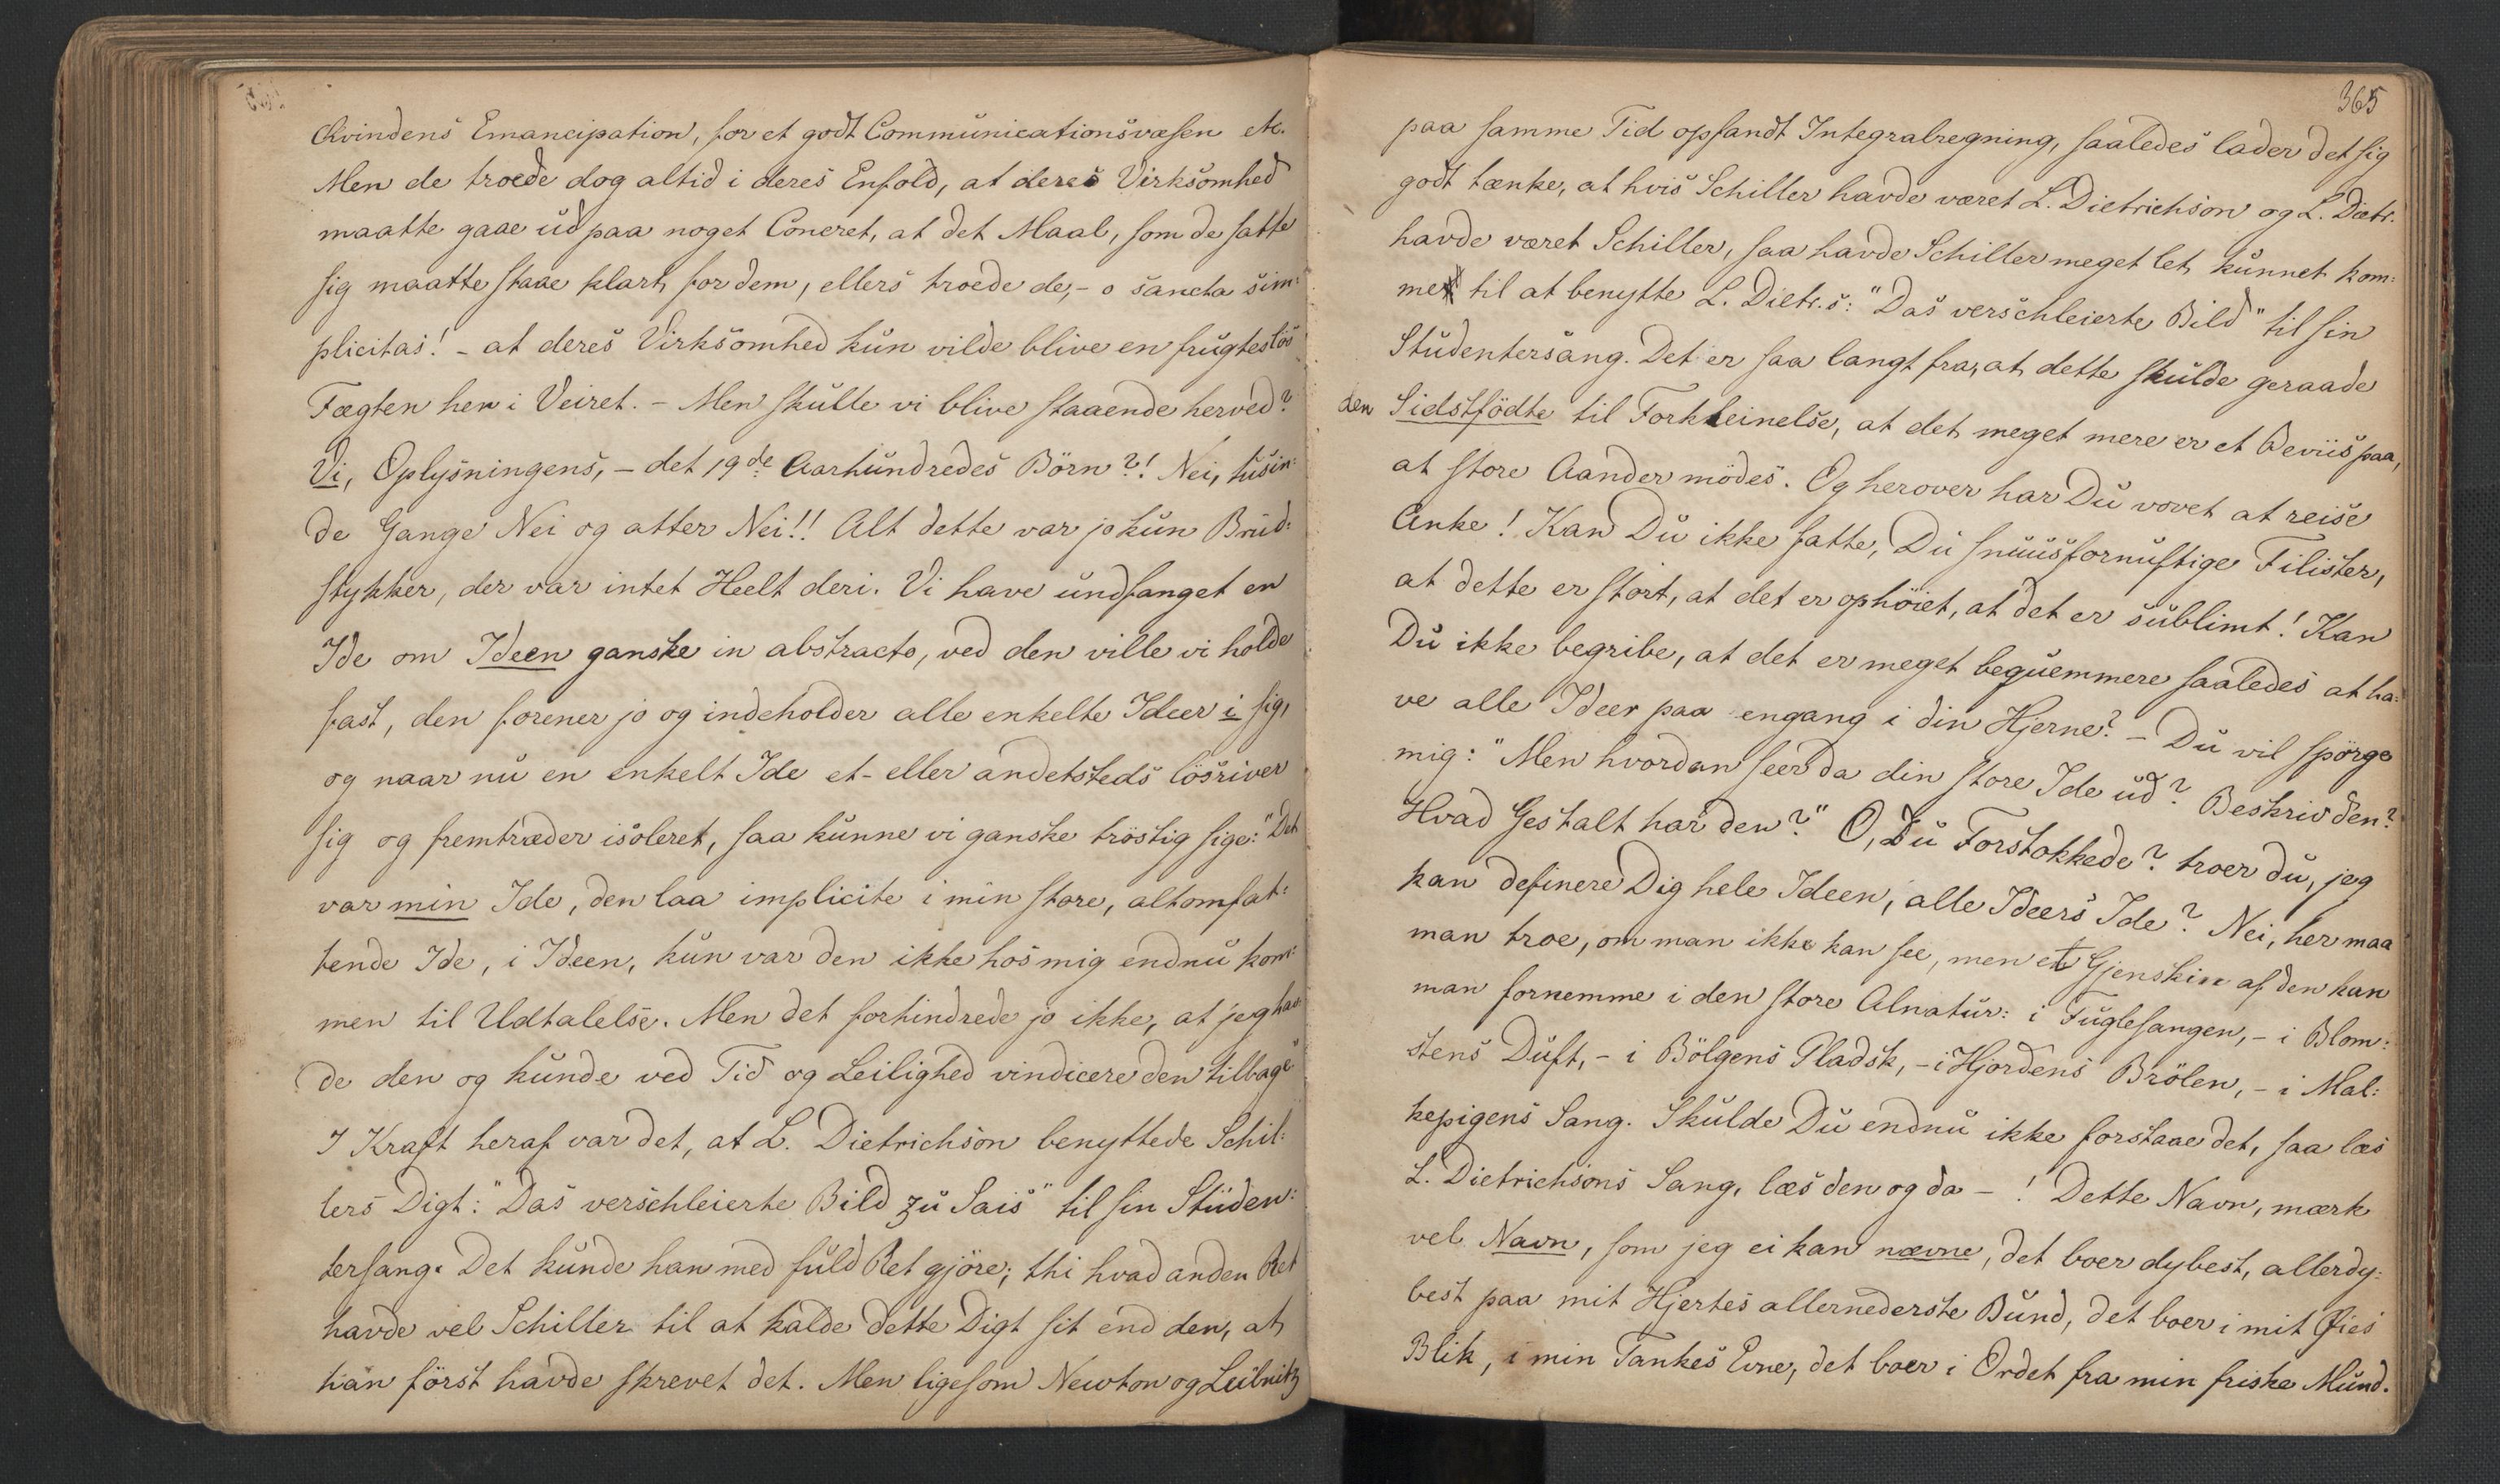 Kvindens Emancipation, for et godt Communicationsvæsen etc.
Men de troede dog altid i deres Enfold, at deres Virksomhed
maatte gaae ud paa noget Concret, at det Maal, som de satte
sig maatte staae klart for dem, ellers troede de, - o sancta sim:
plicitas! - at deres Virksomhed kun vilde blive en frugtesløs
Fægten hen i Veiret. - Men skulle vi blive staaende herved?
Vi, Oplysningens, - det 19de Aarhundredes Börn?! Nei, tusin:
de Gange Nei og atter Nei!! Alt dette var jo kun Brud:
stykker, der var intet Heelt deri. Vi have undfanget en
Ide om Ideen ganske in abstracto, ved den ville vi holde
fast, den forener jo og indeholder alle enkelte Ideer i sig,
og naar nu en enkelt Ide et- eller andetsteds lösriver
sig og fremtræder isoleret, saa kunne vi ganske tröstig sige: "Det
var min Ide, den laa implicite i min store, altomfat:
tende Ide, i Ideen, kun var den ikke hos mig endnu kom:
men til Udtalelse. Men det forhindrede jo ikke, at jeg hav:
de den og kunde ved Tid og Leilighed vindicere den tilbage"
I Kraft heraf var det, at L. Dietrichson benyttede Schil:
lers Digt: "Das verschleierte Bild zu Sais" til sin Studen:
tersang. Det kunde han med fuld Ret gjöre; thi hvad anden Ret
havde vel Schiller til at kalde dette Digt sit end den, at
han först havde skrevet det. Men ligesom Newton og Leibnitz
365
paa samme Tid opfandt Integralregning, saaledes lader det sig
godt tænke, at hvis Schiller havde været L. Dietrichson og L. Dietr.
havde været Schiller, saa havde Schiller meget let kunnet kom:
me til at benytte L. Dietr.s: "Das verschleierte Bild" til sin
Studentersang. Det er saa langt fra, at dette skulde geraade
den Sidstfödte til Forkleinelse, at det meget mere er et Beviis paa,
at store Aander mödes. Og herover har Du vovet at reise
Anke! Kan Du ikke fatte, Du snuusfornuftige Filister,
at dette er stort, at det er ophöiet, at det er sublimt! Kan
Du ikke begribe, at det er meget beqvemmere saaledes at ha:
ve alle Ideer paa engang i din Hjerne? - Du vil spörge
mig: "Men hvordan seer da din store Ide ud? Beskriv den?
Hvad Gestalt har den?" O, Du Forstokkede? troer du, jeg
kan definere Dig hele Ideen, alle Ideers Ide? Nei, her maa
man troe, om man ikke kan see, men et Gjenskin af den kan
man fornemme i den store Alnatur: i Fuglesangen, - i Blom:
stens Duft, - i Bölgens Pladsk, - i Hjordens Brölen, - i Mal:
kepigens Sang. Skulde Du endnu ikke forstaae det, saa læs
L. Dietrichsons Sang, læs den og da - ! Dette Navn, mærk
vel Navn, som jeg ei kan nævne, det boer dybest, allerdy:
best paa mit Hjertes allernederste Bund, det boer i mit Øies
Blik, i min Tankes Evne, det boer i Ordet fra min friske Mund.